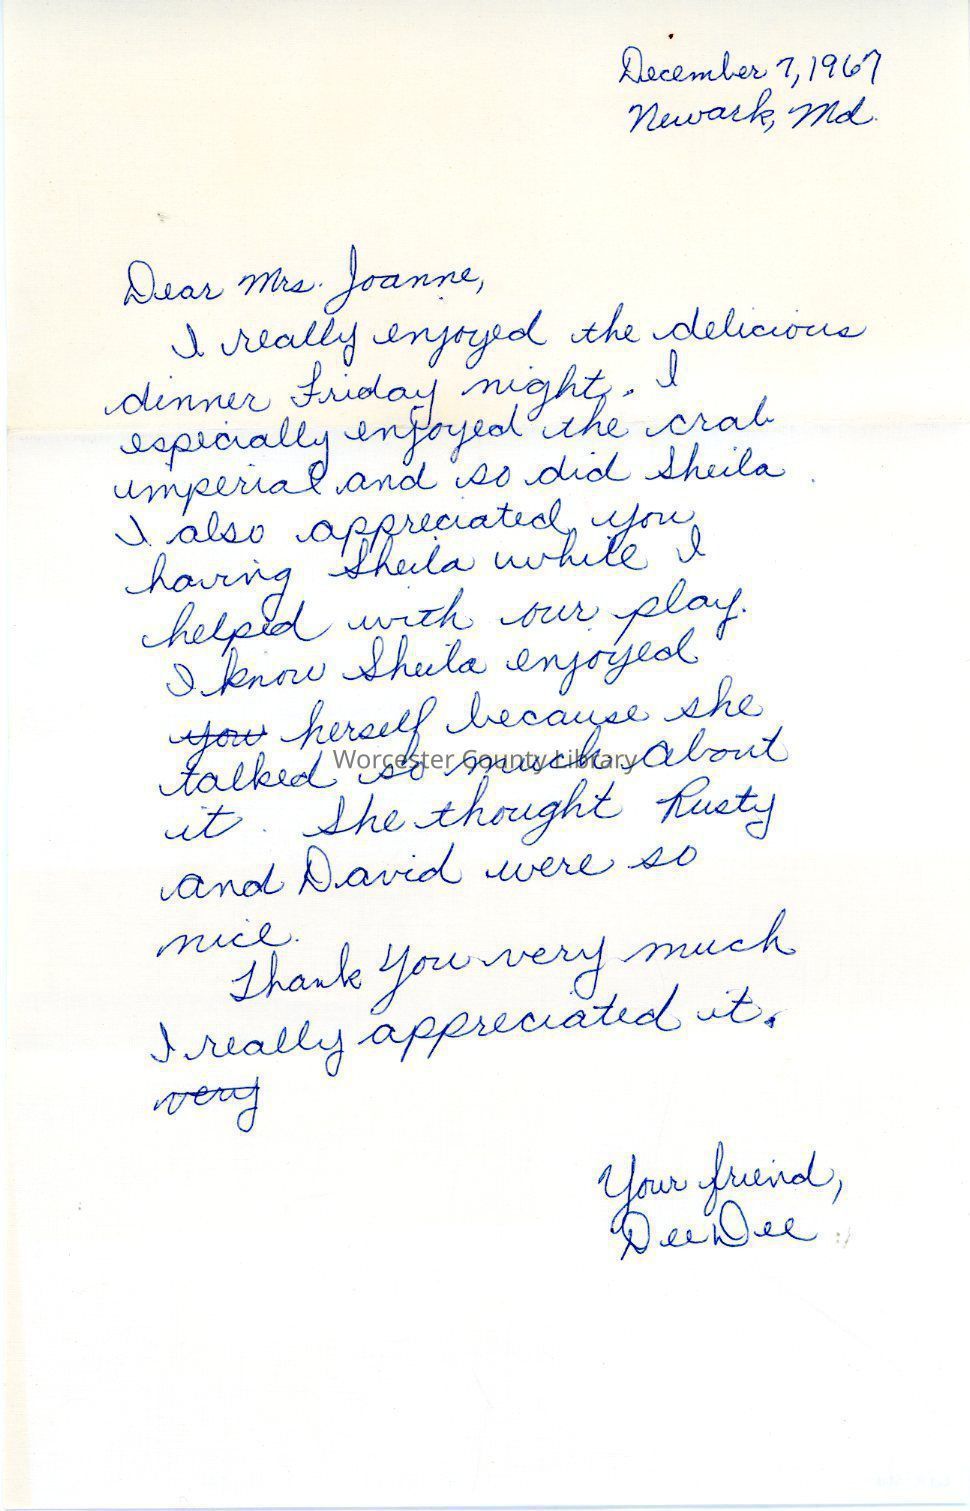 December 7, 1967
Newark, Md.
Dear Mrs. Joanne,
I really enjoyed the delicious
dinner Friday night. I
especially enjoyed the crab
imperial and so did Sheila.
I also appreciated you
having Sheila while I
helped with our play.
I know Sheila enjoyed
you herself because she
talked so much about
Worcester County Library
it. She thought Rusty
and David were so
nice.
Thank You very much
I really appreciated it.
very
Your friend,
DeeDee